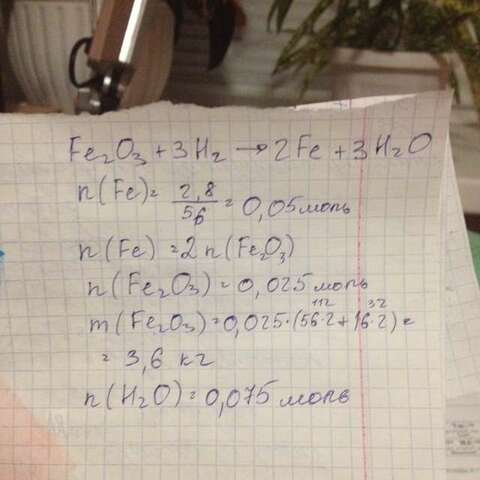 Fe₂O₃ + 3H₂ → 2Fe + 3H₂O
n(Fe) = 2,8/56 = 0,05 моль
n(Fe) = 2n(Fe₂O₃)
n(Fe₂O₃) = 0,025 моль
112 32
m(Fe₂O₃) = 0,025·(56·2+16·2) =
= 3,6 кг
n(H₂O) = 0,075 моль